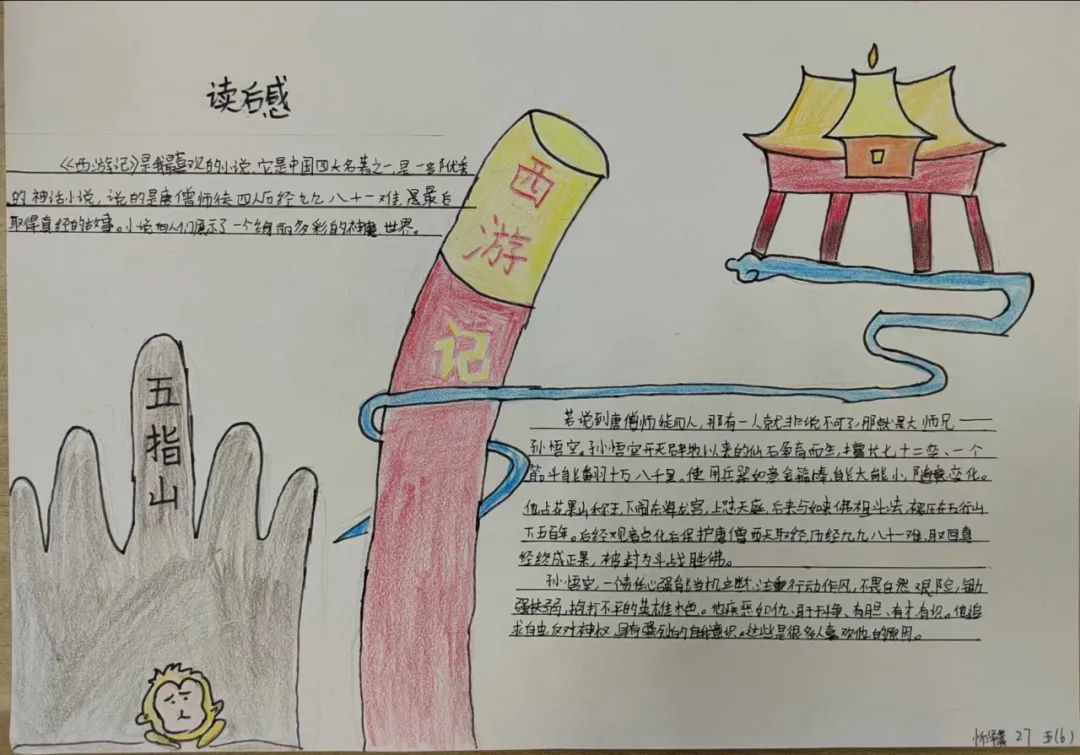 读后感
《西游记》是我最喜欢的小说,它是中国四大名著之一,是一部优秀
的神话小说,说的是唐僧师徒四人历经九九八十一难,最后
取得真经的故事。小说向人们展示了一个绚丽多彩的神魔世界。
西
游
记
五
指
山
若说到唐僧师徒四人,那有一人就非说不可了,那就是大师兄——
孙悟空。孙悟空开天辟地以来的仙石孕育而生,擅长七十二变、一个
筋斗能翻十万八千里。使用兵器如意金箍棒,能大能小,随意变化。
他占花果山称王,下闹东海龙宫,上天庭,后来与如来佛祖斗法,被压在五行山
下五百年。后经观音点化后保护唐僧西天取经,历经九九八十一难,取回真
经终成正果,被封为斗战胜佛。
孙悟空,一个责任心强能当机立断、注重行动作风,不畏自然艰险,锄
强扶弱,抱打不平的英雄本色。他疾恶如仇、敢于斗争、有胆、有才、有识。他追
求自由,反对神权,具有强烈的自我意识。这些是很多人喜欢他的原因。
27 五(6)